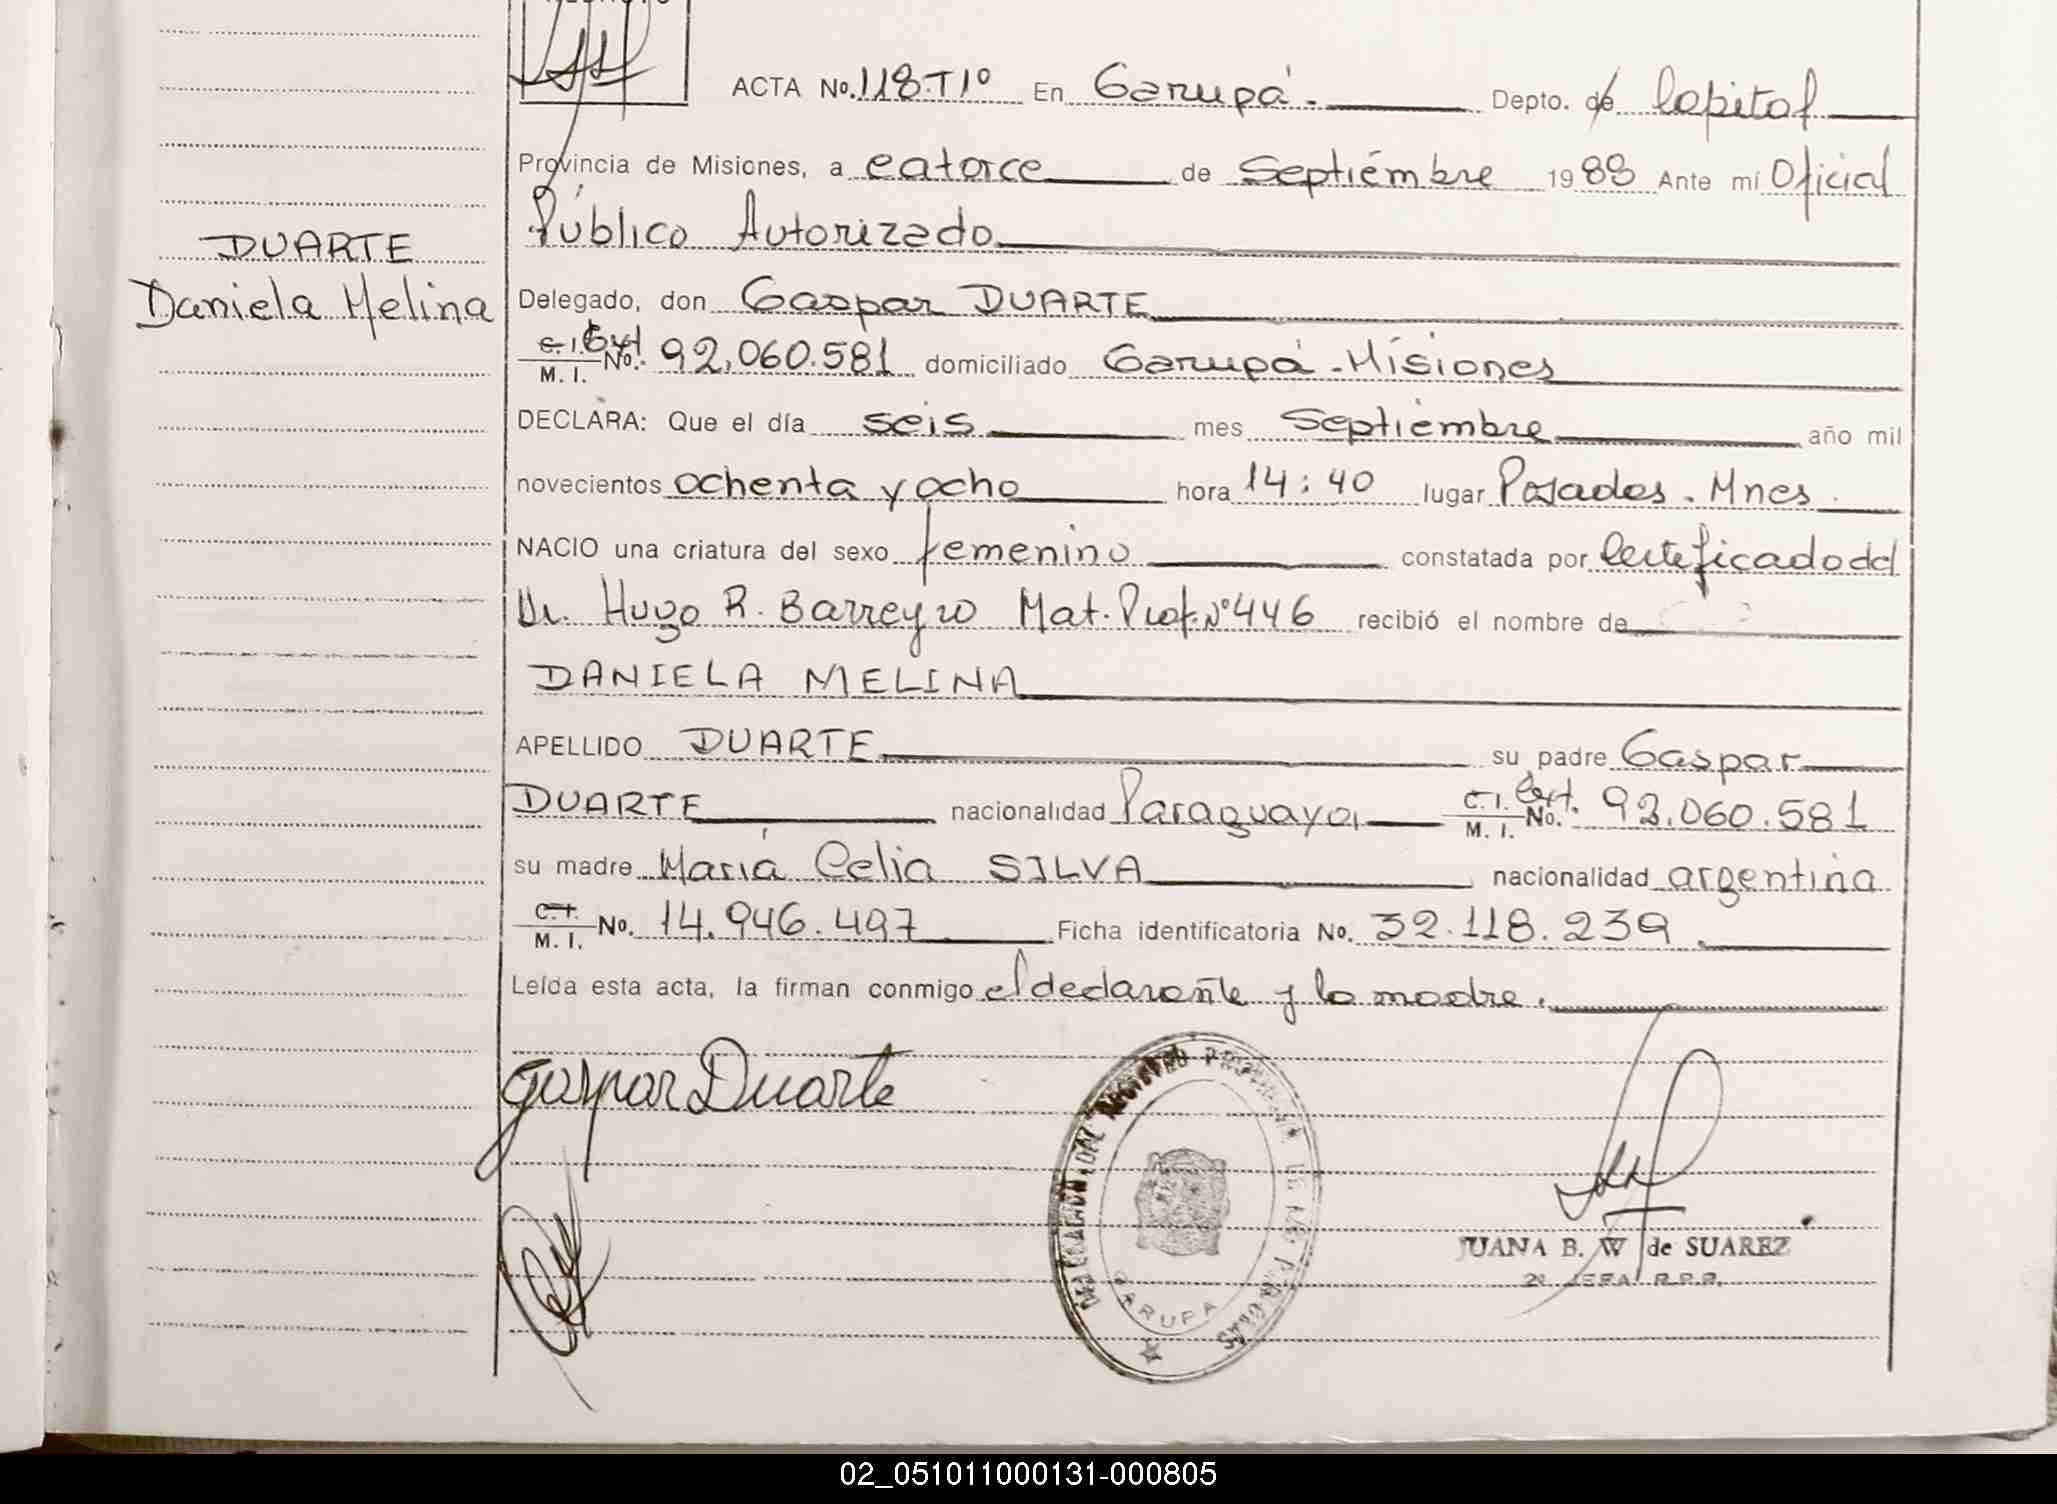 ACTA No. 118.T1º En Garupá.- Depto. de Capital
Provincia de Misiones, a catorce de Septiembre 1988 Ante mí Oficial
Público Autorizado
DUARTE
Daniela Melina
Delegado, don Gaspar DUARTE
C.I. Ext No. 92.060.581 domiciliado Garupá - Misiones
M. I.
DECLARA: Que el día seis mes Septiembre año mil
novecientos ochenta y ocho hora 14:40 lugar Posadas. Mnes.
NACIO una criatura del sexo femenino constatada por Certificado del
Dr. Hugo R. Barreyro Mat. Prof. Nº 446 recibió el nombre de
DANIELA MELINA
APELLIDO DUARTE su padre Gaspar
DUARTE nacionalidad Paraguaya C.I. Ext. No. 92.060.581
M. I.
su madre María Celia SILVA nacionalidad argentina
C.I. No. 14.946.497 Ficha identificatoria No. 32.118.239.
M. I.
Leída esta acta, la firman conmigo el declarante y la madre.
Gaspar Duarte
DELEGACION DEL REGISTRO PROVINCIAL DE LAS PERSONAS
GARUPA
JUANA B. W de SUAREZ
2º JEFA R.P.P.
02_051011000131-000805